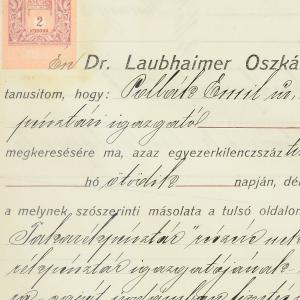 2
Én Dr. Laubhaimer Oszká
tanusitom, hogy: Pollák Emil úr
pénztári igazgató
megkeresésére ma, azaz egyezerkilenczszáz ti
hó ötödik napján, dé
a melynek szószerinti másolata a tulsó oldalon
Takarékpénztár" részére
rékpénztár igazgatójának